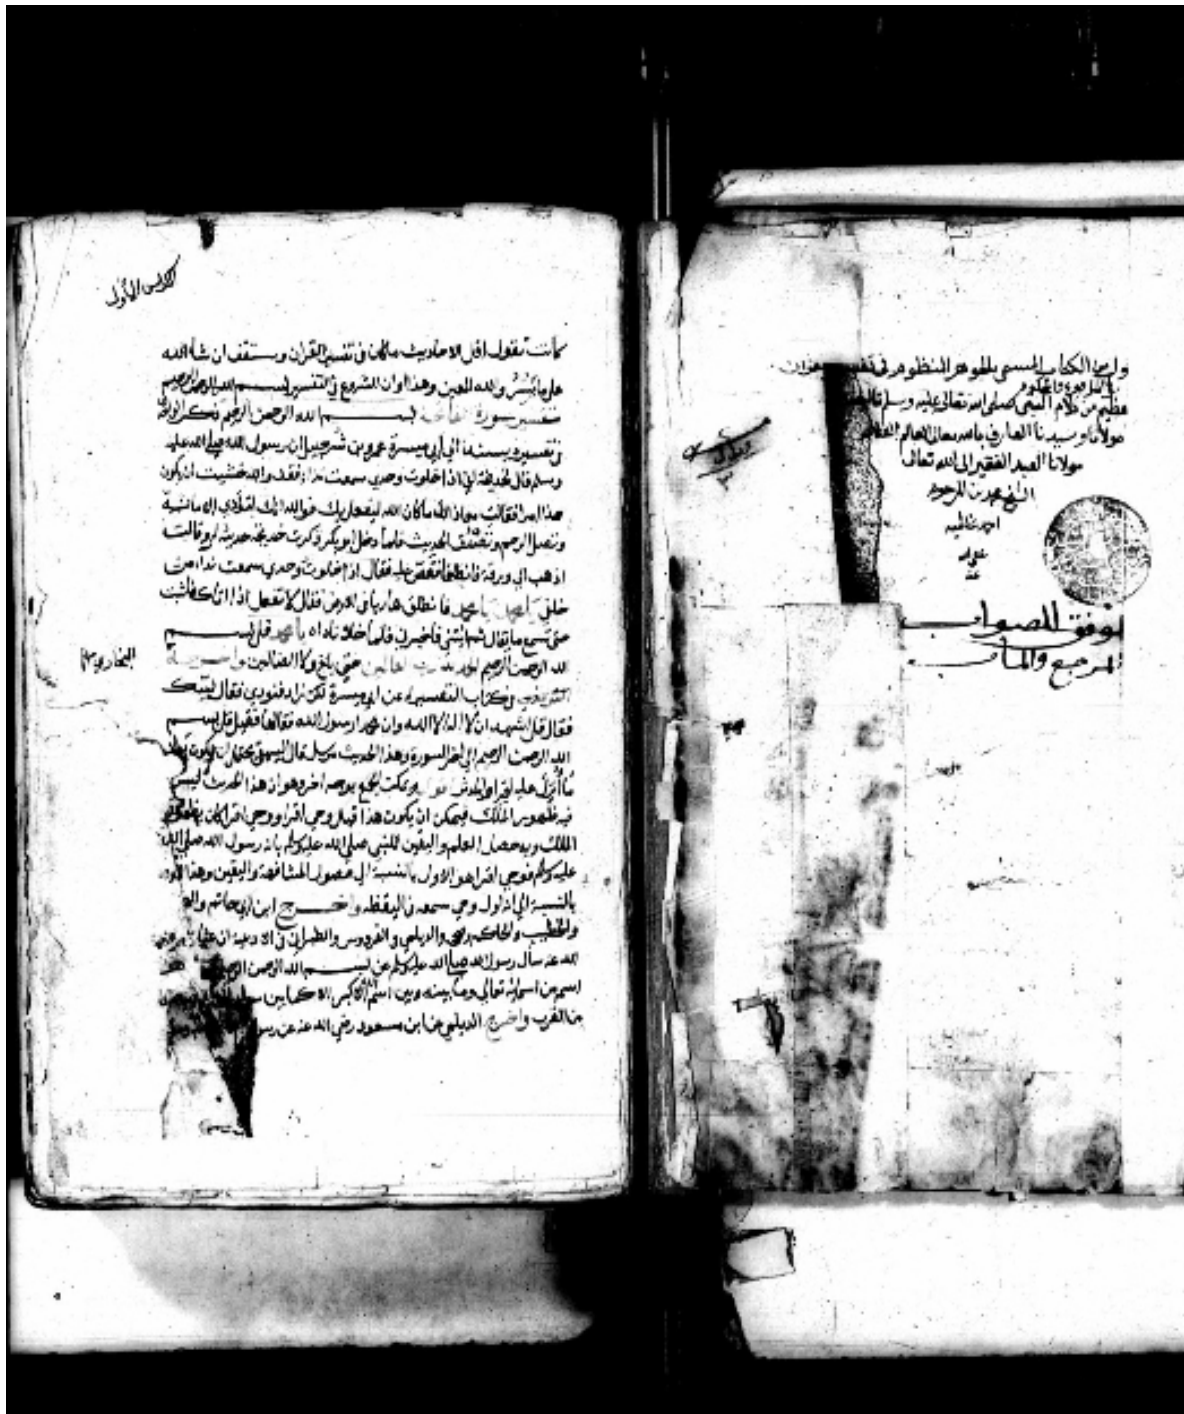 الكتاب المسمى بالجوهر المنظوم في
بالمرفوع والمحكوم
من كلام النبي صلى الله تعالى عليه وسلم
مولانا وسيدنا العارف بالله تعالى العالم
مولانا العبد الفقير الى الله تعالى
الشيخ محمد بن المرحوم
احمد عقيلة
موفق للصواب
المرجع والمآب
الاول
كانت تقول اقل الاحاديث ما كان في تفسير القران وستقف ان شاء الله
على ما يسر والله المعين وهذا اوان الشروع في التفسير بسم الله الرحمن الرحيم
تفسير سورة الفاتحة بسم الله الرحمن الرحيم
في تفسيره بسنده الى ابي ميسرة عمرو بن شرحبيل ان رسول الله صلى الله عليه
وسلم قال لخديجة اني اذا خلوت وحدي سمعت نداء فقد والله خشيت ان يكون
هذا امرا فقالت معاذ الله ما كان الله ليفعل بك فوالله انك لتؤدي الامانة
وتصل الرحم وتصدق الحديث فلما دخل ابو بكر ذكرت خديجة حديثه له وقالت
اذهب الى ورقة فانطلقا فقصا عليه فقال اذا خلوت وحدي سمعت نداء من
خلفي يا محمد يا محمد فانطلق هاربا في الارض فقال لا تفعل اذا اتاك فاثبت
حتى تسمع ما يقول ثم ائتني فاخبرني فلما خلا ناداه يا محمد قل بسم
الله الرحمن الرحيم الحمد لله رب العالمين حتى بلغ ولا الضالين
البخاري
في كتاب التفسير عن ابي ميسرة لكن زاد فنودي فقال لبيك
فقال قل اشهد ان لا اله الا الله وان محمدا رسول الله فقالها فقيل قل بسم
الله الرحمن الرحيم الى اخر السورة وهذا الحديث مرسل قال البيهقي يحتمل ان يكون
ما انزل عليه اقرا والمدثر ويمكن الجمع بوجه اخر وهو ان هذا الحديث ليس
فيه ظهور الملك فيمكن ان يكون هذا قبل وحي اقرا ووحي اقرا كان
الملك وبه حصل العلم واليقين للنبي صلى الله عليه وسلم بانه رسول الله صلى الله
عليه وسلم فوحي اقرا هو الاول بالنسبة الى حصول المشافهة واليقين وهذا
بالنسبة الى انه اول وحي سمعه في اليقظه واخرج ابن ابي حاتم
والخطيب والحاكم والديلمي
الله عنه سال رسول الله صلى الله عليه وسلم عن بسم الله الرحمن الرحيم
اسم من اسمائه تعالى وما بينه وبين اسم الله الاكبر الا كما بين سواد
من القرب واخرج الديلمي عن ابن مسعود رضي الله عنه عن رسول